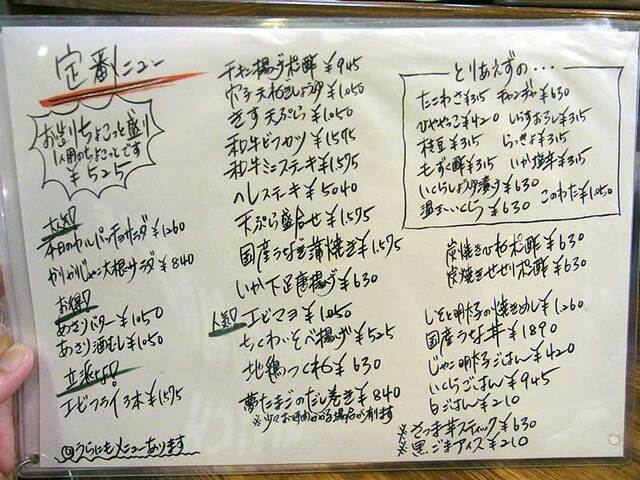 定番メニュー
お造りちょこっと盛り
1人用のちょこっとです
¥525
大人気!
本日のカルパッチョサラダ ¥1260
かりかりじゃこ大根サラダ ¥840
お爆!
あさりバター ¥1050
あさり酒むし ¥1050
立派な!
エビフライ3本 ¥1575
◎うらにもメニューあります
チキン揚げポン酢 ¥945
穴子天ねぎしょうゆ ¥1050
きす天ぷら ¥1050
和牛ビフカツ ¥1575
和牛ミニステーキ ¥1575
ヘレステーキ ¥5040
天ぷら盛合せ ¥1575
国産うなぎ蒲焼き ¥1.575
いか下足唐揚げ ¥630
人気! エビマヨ ¥1050
ちくわいそべ揚げ ¥525
地鶏つくね ¥630
夢たまごのだし巻き ¥840
※少々お時間かかる場合が有ります
とりあえずの・・・
たこわさ ¥315 チャンジャ ¥630
ひややっこ ¥420 しらすおろし ¥315
枝豆 ¥315 らっきょ ¥315
もずく酢 ¥315 いか塩辛 ¥315
いくらしょうゆ漬け ¥630
温玉いくら ¥630 このわた ¥1050
炭焼きひもポン酢 ¥630
炭焼きせせりポン酢 ¥630
しそと明太子の焼きめし ¥1260
国産うなぎ丼 ¥1890
じゃこ明太子ごはん ¥420
いくらごはん ¥945
白ごはん ¥210
※さつま芋スティック ¥630
※黒ごまアイス ¥210